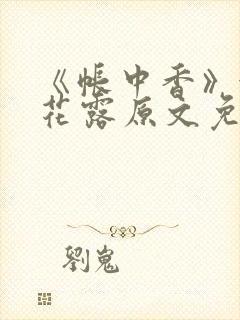 《帳中香》
花露原文免
劉嵬